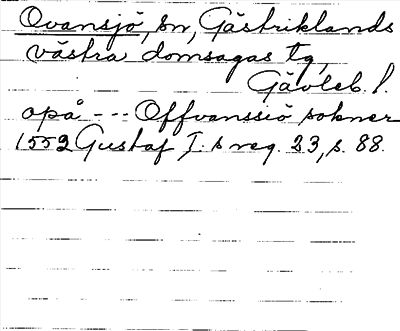 Ovansjö, sn, Gästriklands
västra domsagas tg,
Gävleb. l.
opå --- Offvanssiö sokner
1552 Gustaf I:s reg. 23, s. 88.